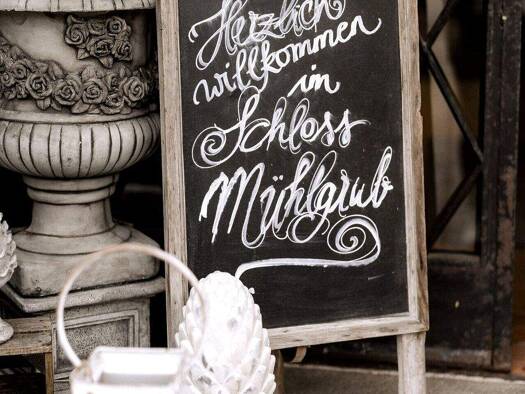 Herzlich
willkommen
im
Schloss
Mühlgrub